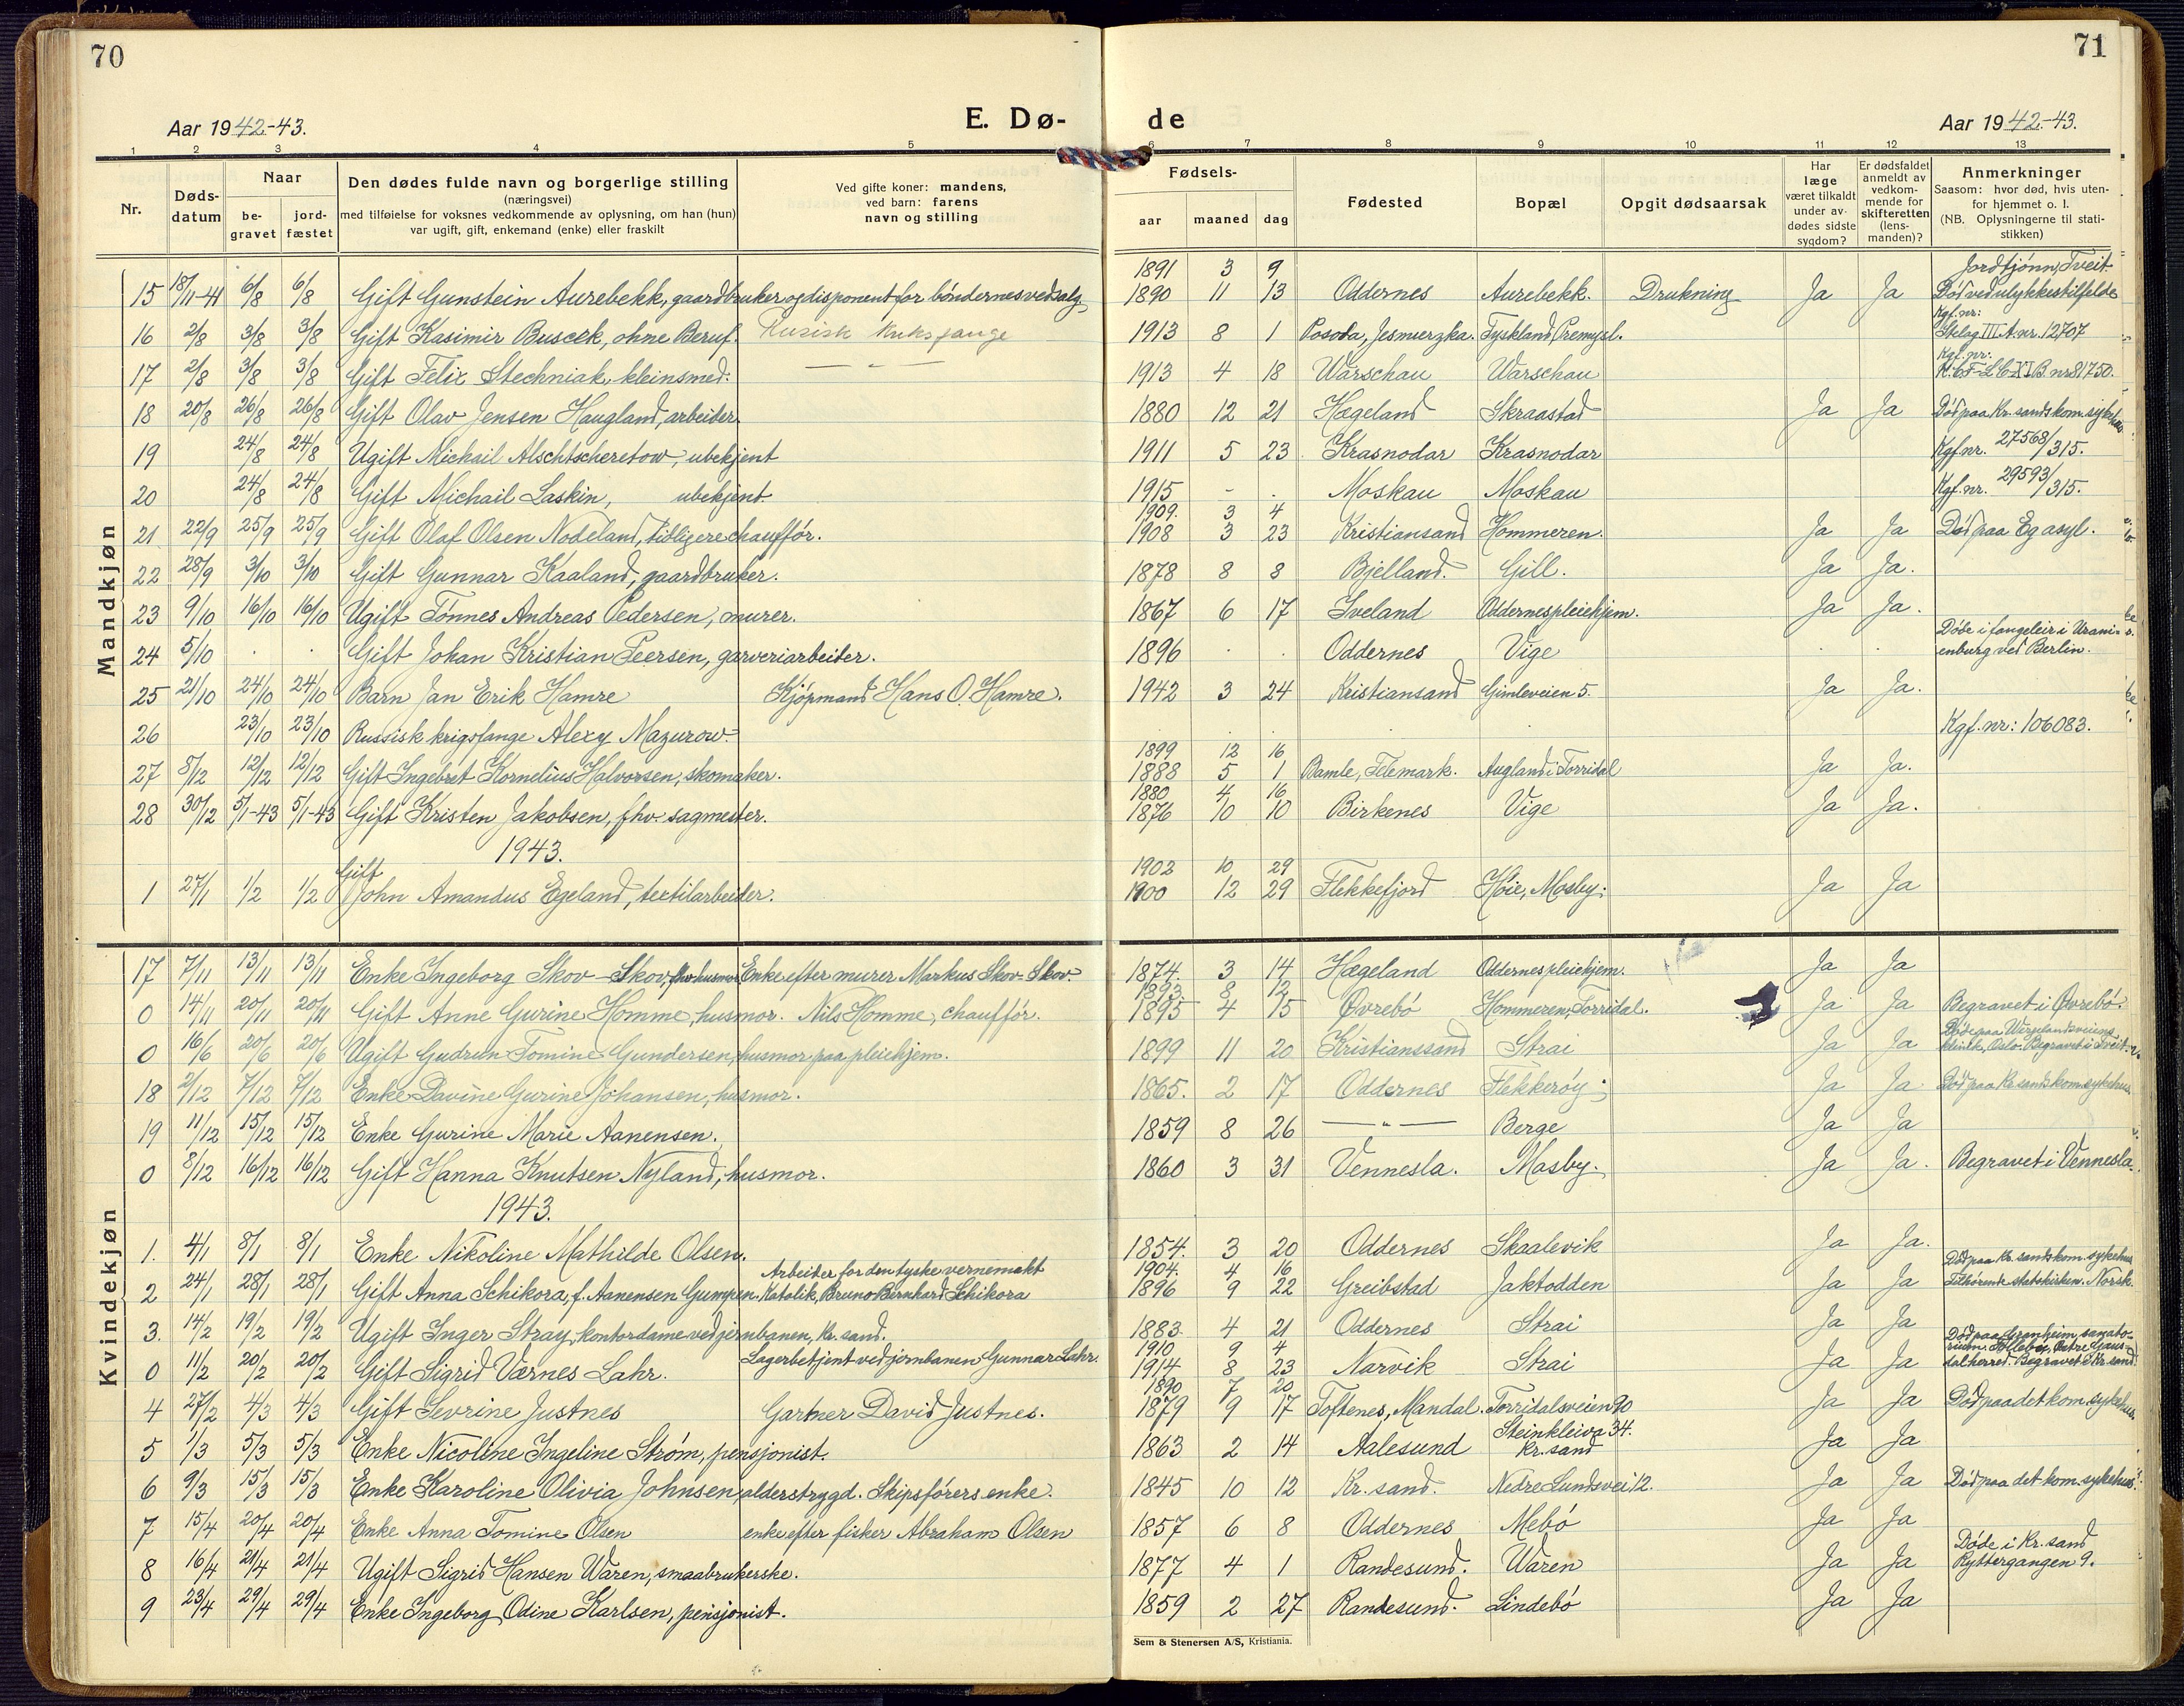 70
71
Aar 1942-43.
E. Dø-
de
Aar 1942-43.
1 2 3 4 5 6 7 8 9 10 11 12 13
Nr.
Døds-datum
Naar
be-gravet
jord-fæstet
Den dødes fulde navn og borgerlige stilling
(næringsvei)
med tilføielse for voksnes vedkommende av oplysning, om han (hun)
var ugift, gift, enkemand (enke) eller fraskilt
Ved gifte koner: mandens,
ved barn: farens
navn og stilling
Fødsels-
aar maaned dag
Fødested
Bopæl
Opgit dødsaarsak
Har læge været tilkaldt under av-dødes sidste sygdom?
Er dødsfaldet anmeldt av vedkom-mende for skifteretten (lens-manden)?
Anmerkninger
Saasom: hvor død, hvis uten-for hjemmet o. l.
(NB. Oplysningerne til stati-stikken)
Mandkjøn
1891 3 9 Jordtjønn, Tveit
15 18/11-41 6/8 6/8 Gift Gunstein Aurebekk, gaardbruker og disponent for bøndernes vedsalg 1890 11 13 Oddernes Aurebekk. Drukning Ja Ja Død ved ulykkestilfelde
Kgf. nr:
16 2/8 3/8 3/8 Gift Kasimir Buscek, ohne Beruf. 1913 8 1 Posoda, Jesmierzka. Tyskland, Premysl. Stalag III A. nr. 12707
Kgf. nr:
17 2/8 3/8 3/8 Gift Felix Stechniak, kleinsmed. — " — 1913 4 18 Warschau Warschau nr 81750.
18 20/8 26/8 26/8 Gift Olav Jensen Haugland, arbeider. 1880 12 21 Hægeland Skraastad Ja Ja Død paa Kr.sands kom. sykehus
19 24/8 24/8 Ugift Michail Alschtscheretow, ubekjent 1911 5 23 Krasnodar Krasnodar Kgf.nr. 27568/315.
20 24/8 24/8 Gift Michail Laskin, ubekjent 1915 - . Moskau Moskau Kgf. nr. 29593/315.
1909. 3 4
21 22/9 25/9 25/9 Gift Olaf Olsen Nodeland, tidligere chauffør. 1908 3 23 Kristiansand Hommeren. Ja Ja Død paa Eg asyl.
22 28/9 3/10 3/10 Gift Gunnar Kaaland, gaardbruker. 1878 8 8 Bjelland. Gill. Ja Ja.
23 9/10 16/10 16/10 Ugift Tønnes Andreas Pedersen, murer. 1867 6 17 Iveland Oddernes pleiehjem. Ja Ja.
24 5/10 . . Gift Johan Kristian Peersen, garveriarbeider. 1896 . . Oddernes Vige . . Døde i fangeleir i Urani-
enburg ved Berlin.
25 21/10 24/10 24/10 Barn Jan Erik Hamre Kjøpmand Hans O. Hamre. 1942 3 24 Kristiansand Gimleveien 5. Ja Ja.
26 23/10 23/10 Russisk krigsfange Alexy Mazurow. Kgf. nr: 106083.
1899 12 16
27 8/12 12/12 12/12 Gift Ingebret Kornelius Halvorsen, skomaker. 1888 5 1 Bamle, Telemark. Augland i Torridal Ja Ja.
1880 4 16
28 30/12 5/1-43 5/1-43 Gift Kristen Jakobsen, fhv. sagmester. 1876 10 10 Birkenes Vige Ja Ja.
1943.
Gift 1902 10 29
1 27/1 1/2 1/2 John Amandus Egeland, textilarbeider. 1900 12 29 Flekkefjord Høie, Mosby. Ja Ja
Kvindekjøn
17 7/11 13/11 13/11 Enke Ingeborg Skov-Skov, fhv. husmor Enke efter murer Markus Skov-Skov. 1874. 3 14 Hægeland Oddernes pleiehjem. Ja Ja
1893 8 12
0 14/11 20/11 20/11 Gift Anne Gurine Homme, husmor. Nils Homme, chauffør. 1895 4 15 Øvrebø Hommeren, Torridal. Ja Ja Begravet i Øvrebø.
Døde paa Wergelandsveiens
0 16/6 20/6 20/6 Ugift Gudrun Tomine Gundersen, husmor paa pleiehjem. 1899 11 20 Kristianssand Strai Ja Ja klinik, Oslo. Begravet i Tveit.
18 2/12 7/12 7/12 Enke Davine Gurine Johansen, husmor. 1865. 2 17 Oddernes Flekkerøy. Ja Ja Død paa Kr sands kom. sykehus
19 11/12 15/12 15/12 Enke Gurine Marie Aanensen. 1859 8 26 — " — Berge Ja Ja
0 8/12 16/12 16/12 Gift Hanna Knutsen Nyland, husmor. 1860 3 31 Vennesla. Mosby. Ja Ja. Begravet i Vennesla.
1943.
1. 4/1 8/1 8/1 Enke Nikoline Mathilde Olsen. 1854. 3 20 Oddernes Skaalevik Ja Ja.
Arbeider for den tyske vernemakt 1904. 4 16 Død paa Kr. sands kom. sykehus
2 24/1 28/1 28/1 Gift Anna Schikora, f. Aanensen Gumpen. Katolik, Bruno Bernhard Schikora 1896 9 22 Greibstad Jaktodden Ja Ja Tilhørende statskirken. Norsk.
3. 14/2 19/2 19/2 Ugift Inger Stray, kontordame ved jernbanen, Kr. sand. 1883. 4 21 Oddernes Strai Ja Ja
Lagerbetjent ved jernbanen Gunnar Lahr. 1910 9 4 Død paa Granheim sanato-
rium, Follebu, Østre Gaus-
0 11/2 20/2 20/2 Gift Sigrid Værnes Lahr. 1914 8 23 Narvik Strai Ja Ja dal herred. Begravet i Kr. sand.
1890 7 20
4 27/2 4/3 4/3 Gift Sevrine Justnes Gartner David Justnes. 1879 9 17 Toftenes, Mandal. Torridalsveien 90 Ja Ja Død paa det kom. sykehus
Steinkleiva 34.
5 1/3 5/3 5/3 Enke Nicoline Ingeline Strøm, pensjonist. 1863 2 14 Aalesund Kr. sand Ja Ja
6 9/3 15/3 15/3 Enke Karoline Olivia Johnsen, alderstrygd. Skipsførers enke. 1845 10 12 Kr. sand. Nedre Lundsvei 12. Ja Ja Død paa det kom. sykehus.
7 15/4 20/4 20/4 Enke Anna Tomine Olsen enke efter fisker Abraham Olsen 1857 6 8 Oddernes Mebø Ja Ja
Døde i Kr. sand
8 16/4 21/4 21/4 Ugift Sigrid Hansen Waren, smaabrukerske. 1877 4 1 Randesund. Waren Ja Ja Ryttergangen 9.
9 23/4 29/4 29/4 Enke Ingeborg Odine Karlsen, pensjonist. 1859 2 27 Randesund. Lindebø Ja Ja
Sem & Stenersen A/S, Kristiania.